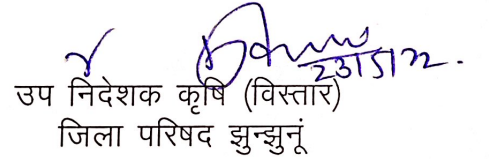 23/5/22.
उप निदेशक कृषि (विस्तार)
जिला परिषद झुन्झुनूं